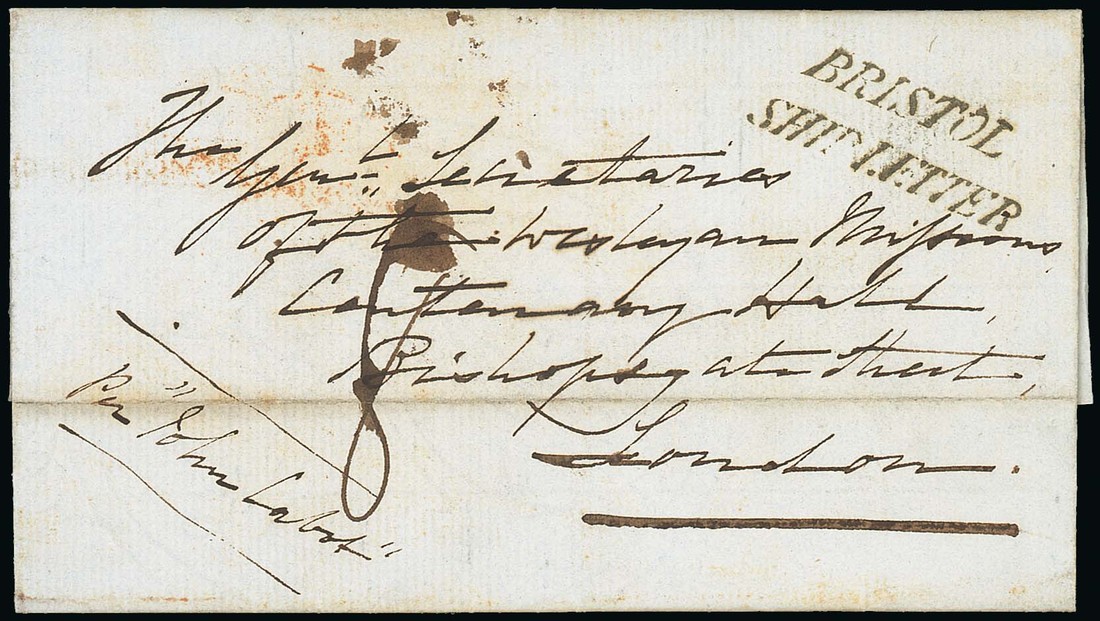 BRISTOL
SHIP LETTER
The
Genl. Secretaries
of the Wesleyan Missions
Centenary Hall,
Bishopsgate Street,
London.
8
Per "John Cabot"